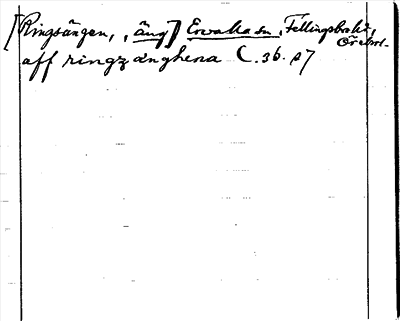 [Ringsängen, äng] Ervalla sn, Fellingsbro hd,
Örebro l.
aff ringzænghena C. 36. s 7